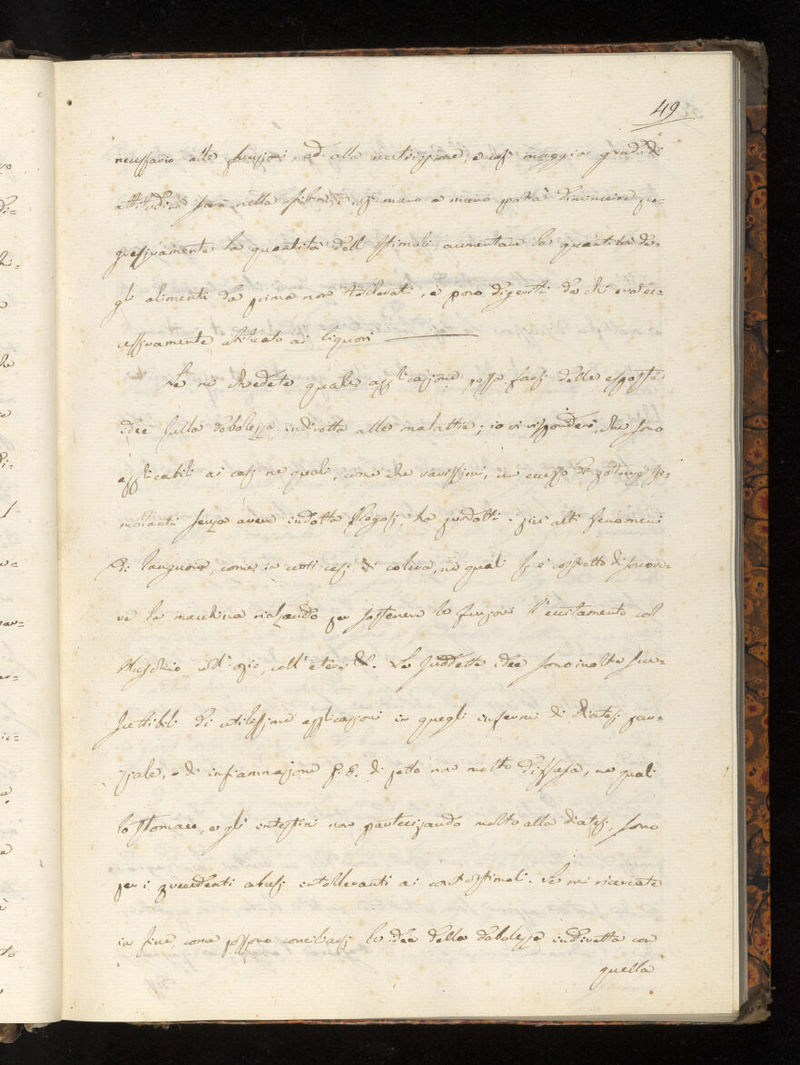 49
necessario alle funzioni, ed alla nutrizione, e così maggior grado di
attitudine sarà nella fibra, e di mano a mano potrà diminuire pro=
gressivamente la quantità dell stimoli, aumentar la quantità de=
gli alimenti da prima non tollerati, e poco digeriti da chi era ec=
cessivamente abituato ai liquori
Se mi chiedete quale applicazione possa farsi delle esposte
idee sulla debolezza indiretta alle malattie; io vi risponderò, che sono
applicabili ai casi ne quali, come che rarissimi, un eccesso di potenze sti=
molanti senza avere indotta flogosi, ha prodotti i più alti fenomeni
di languore, come in certi casi di colera, ne quali si è costretto di soccorre=
re la macchina rialzando per sostenere le funzioni l'eccitamento col
Muschio coll'opio, coll'etere &. Le suddette idee sono inoltre su=
scettibili di utilissime applicazioni in quegli infermi di Diatesi par=
ziale, o di infiammazione p. e. di petto non molto diffusa, ne quali
lo stomaco, e gli intestini non partecipando molto alla diatesi, sono
per i precedenti abusi intolleranti ai controstimoli. Se mi ricercate
in fine come possono conciliarsi le idee della debolezza indiretta con
quella